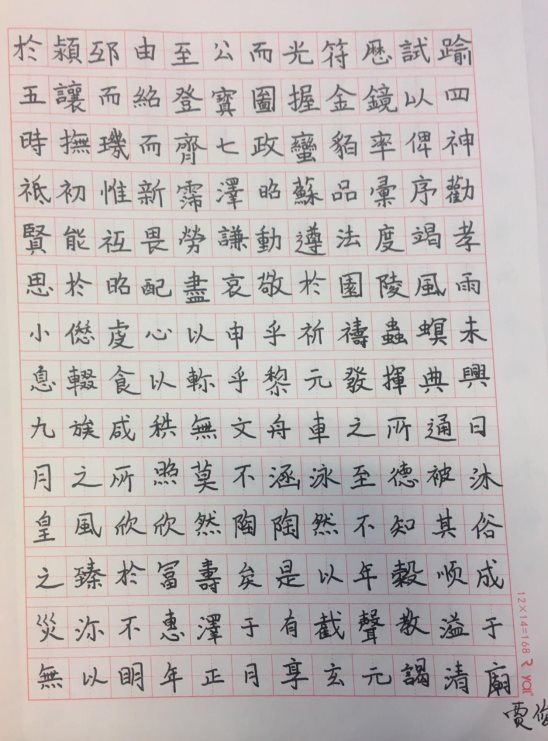 於潁邳由至公而光符歷試踰
五讓而紹登寶圖握金鏡以四
時撫璣而齊七政蠻貊率俾神
祇初惟新霈澤昭蘇品彙序勸
賢能祗畏勞謙動遵法度竭孝
思於昭配盡哀敬於園陵風雨
小愆虔心以申乎祈禱蟲螟未
息輟食以軫乎黎元發揮典興
九族咸秩無文舟車之所通日
月之所照莫不涵泳至德被沐
皇風欣欣然陶陶然不知其俗
之臻於富壽矣是以年穀順成
災沴不惠澤于有截聲教溢于
無以明年正月享玄元謁清廟
12×14=168
賈